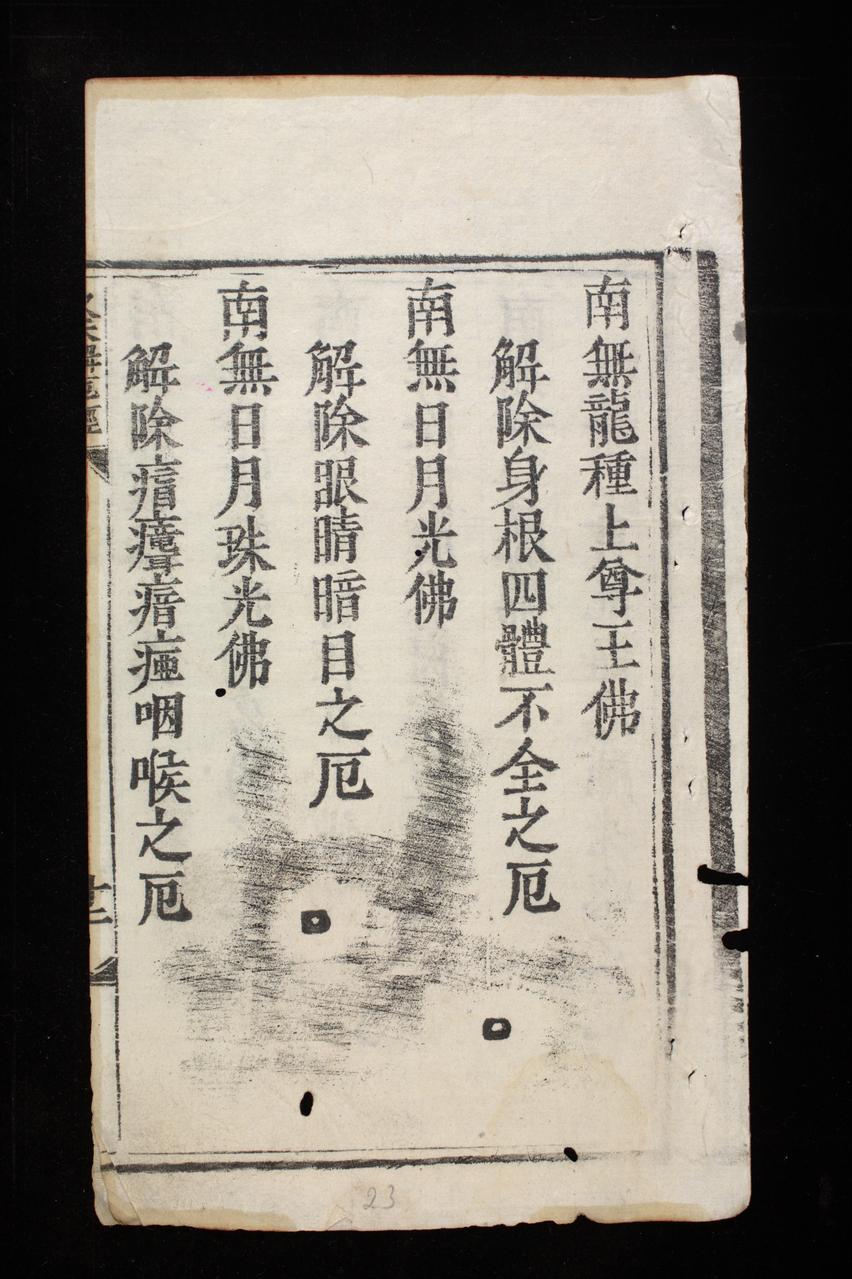 南無龍種上尊王佛
解除身根四體不全之厄
南無日月光佛
解除眼睛暗目之厄
南無日月珠光佛
解除瘖瘂咽喉之厄
解厄經
廿二
23